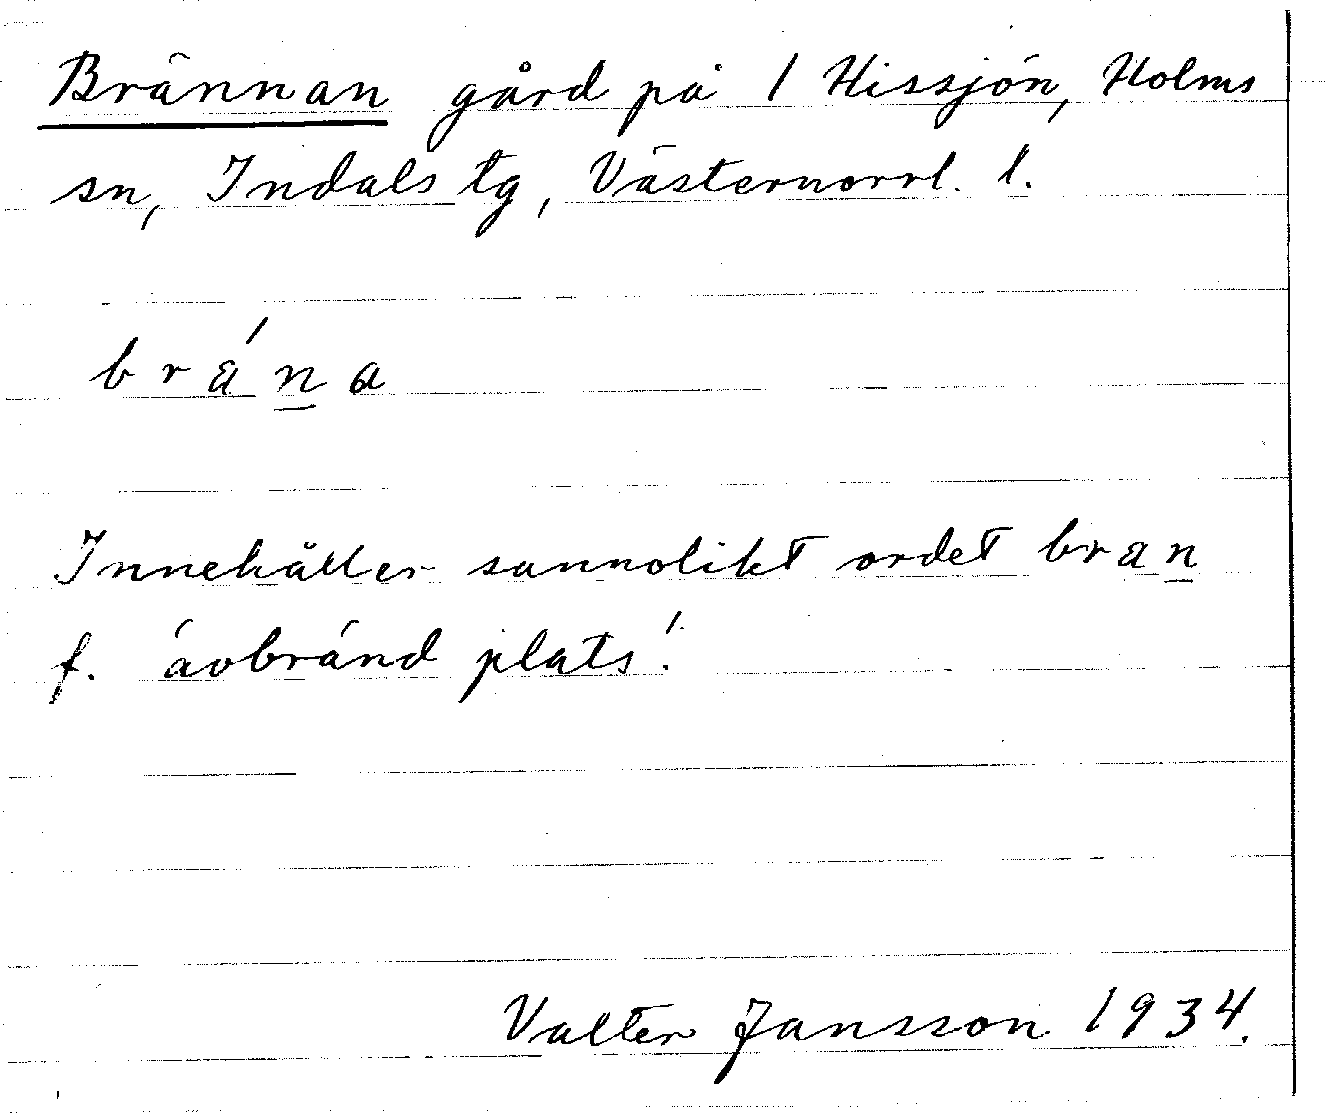 Brännan gård på 1 Hissjön, Holms
sn, Indals tg, Västernorrl. l.
brána
Innehåller sannolikt ordet bran
f. 'avbränd plats'.
Valter Jansson 1934.